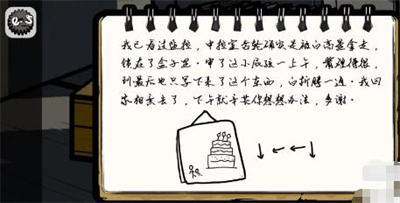 我已看过监控，中控室齿轮确实是被白高兴拿走，
锁在了盒子里。审了这小屁孩一上午，嘴硬得很，
到最后也只写下来了这个东西，白折腾一通。我回
水相去了，下午就辛苦你想想办法，多谢。
↓←←↓